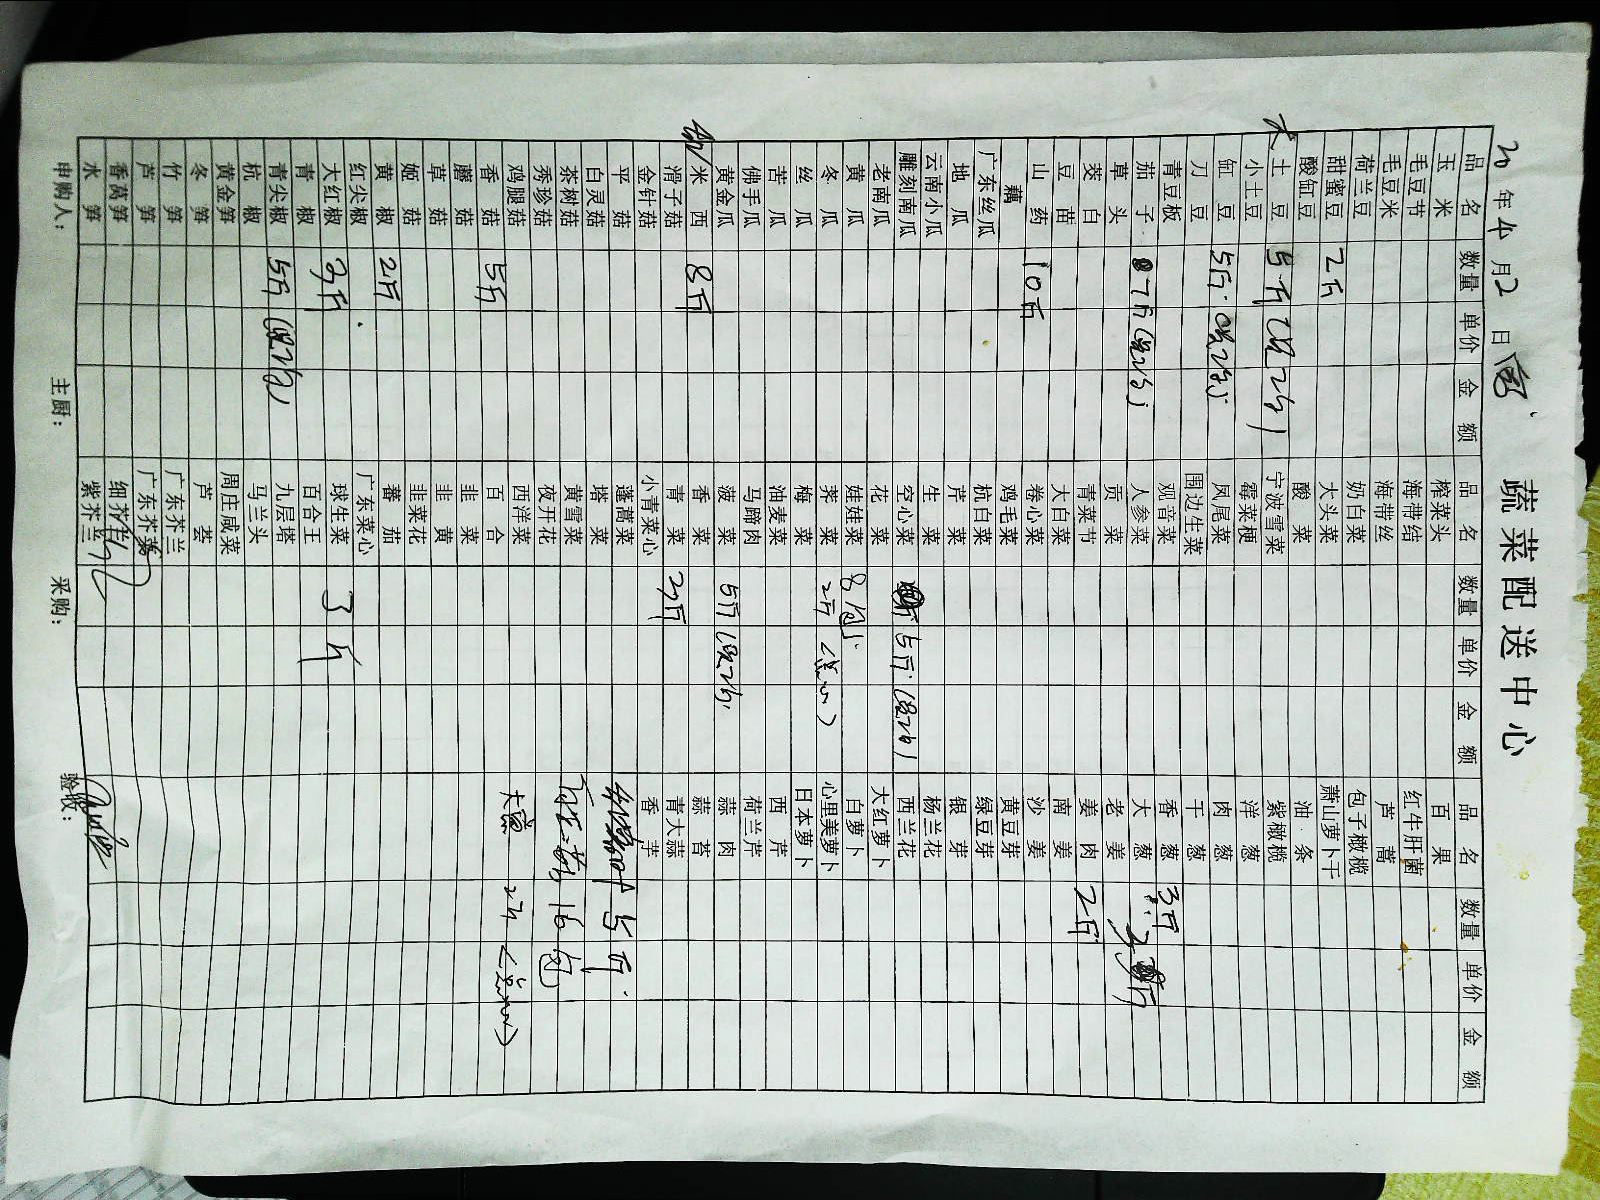 蔬菜配送中心
20 年 4 月 2 日
品 名 数量 单价 金 额 品 名 数量 单价 金 额 品 名 数量 单价 金 额
玉 米 榨菜头 百 果
毛豆节 海带结 红牛肝菌
毛豆米 海带丝 芦 蕾
荷兰豆 奶白菜 包子橄榄
甜蜜豆 2斤 大头菜 萧山萝卜干
酸缸豆 酸 菜 油 条
大 土 豆 5斤 宁波雪菜 紫橄榄
小土豆 霉菜梗 洋 葱
缸 豆 5斤 凤尾菜 肉 葱
刀 豆 围边生菜 干 葱
青豆板 观音菜 香 葱 3斤
茄 子 7斤 人参菜 大 葱
草 头 贡 菜 老 姜
葵 白 青菜节 姜 肉 2斤
豆 苗 大白菜 南 姜
山 药 10斤 卷心菜 沙 姜
藕 鸡毛菜 黄豆芽
广东丝瓜 杭白菜 绿豆芽
地 瓜 芹 菜 银 芽
云南小瓜 生 菜 杨兰花
雕刻南瓜 空心菜 5斤 西兰花
老南瓜 花 菜 大红萝卜
黄 瓜 娃娃菜 8包 白萝卜
冬 瓜 荠 菜 2斤 心里美萝卜
丝 瓜 梅 菜 日本萝卜
苦 瓜 油麦菜 西 芹
佛手瓜 马蹄肉 荷兰芹
黄金瓜 菠 菜 5斤 蒜 肉
米 西 8斤 香 菜 蒜 苔
滑子菇 青 菜 3斤 青大蒜
金针菇 小青菜心 香 芋
平 菇 蓬蒿菜 5斤
白灵菇 塔 菜
茶树菇 黄雪菜 16包
秀珍菇 夜开花
鸡腿菇 西洋菜 大葱 2斤
香 菇 5斤 百 合
蘑 菇 韭 菜
草 菇 韭 黄
姬 菇 韭菜花
黄 椒 2斤 蕃 茄
红尖椒 广东菜心
大红椒 3斤 球生菜 3斤
青 椒 百合王
青尖椒 5斤 九层塔
杭 椒 马兰头
黄金笋 周庄咸菜
冬 笋 芦 荟
竹 笋 广东芥兰
芦 笋 广东芥菜
香莴笋 细芥兰
水 笋 紫芥兰
申购人： 主厨： 采购： 验收：